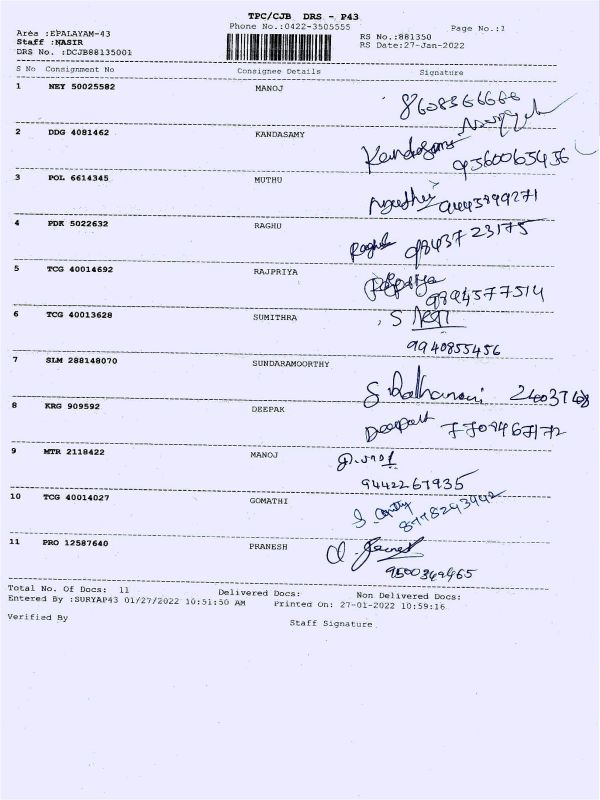 TPC/CJB DRS - P43
Phone No.:0422-3505555
Page No.:1
Area :EPALAYAM-43
Staff :NASIR
DRS No. :DCJB88135001
RS No.:881350
RS Date:27-Jan-2022
S No Consignment No Consignee Details Signature
1 NEY 50025582 MANOJ
2 DDG 4081462 KANDASAMY
Kandasamy
9360065436
3 POL 6614345 MUTHU
4 PDK 5022632 RAGHU
Raghu 9843723175
5 TCG 40014692 RAJPRIYA
9994577514
6 TCG 40013628 SUMITHRA
9940855456
7 SLM 288148070 SUNDARAMOORTHY
8 KRG 909592 DEEPAK
Deepak 7709467172
9 MTR 2118422 MANOJ
9442267935
10 TCG 40014027 GOMATHI
8778293942
11 PRO 12587640 PRANESH
9500349465
Total No. Of Docs: 11 Delivered Docs: Non Delivered Docs:
Entered By :SURYAP43 01/27/2022 10:51:50 AM Printed On: 27-01-2022 10:59:16
Verified By
Staff Signature